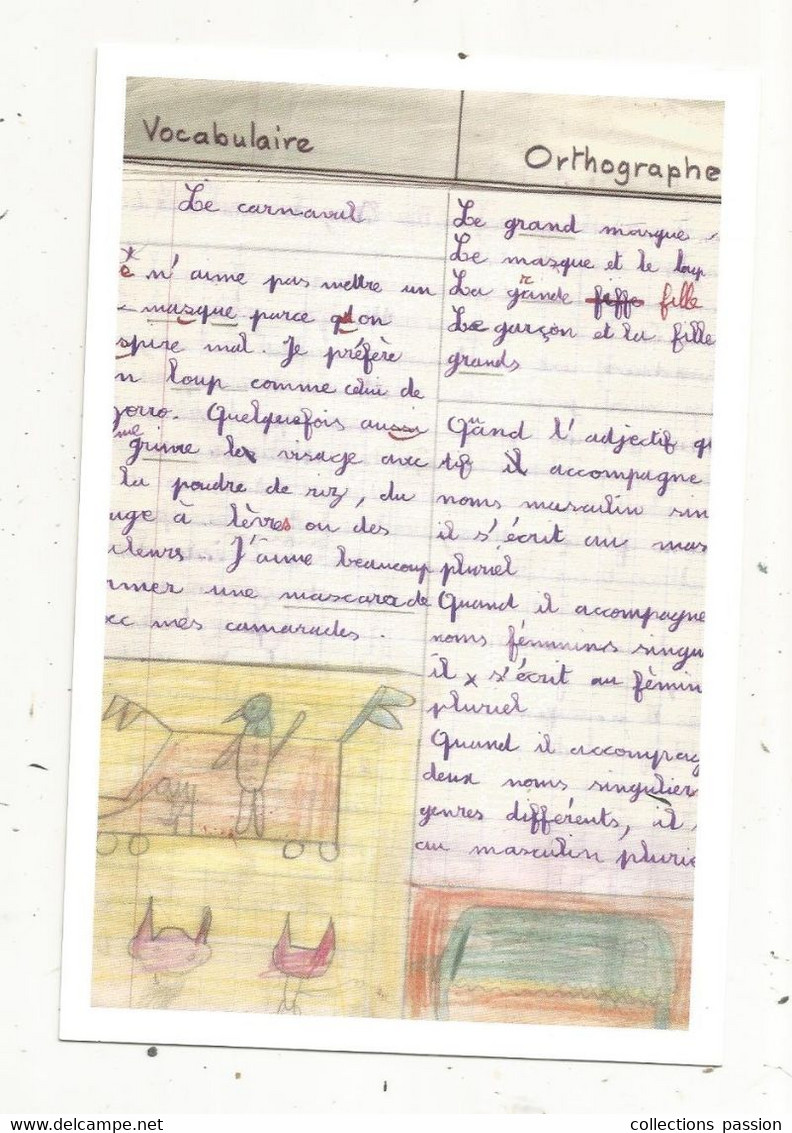 Vocabulaire
Le carnaval
n'aime pas mettre un
masque parce qu'on
spire mal. Je préfère
n loup comme celui de
zorro. Quelquefois aussi
me grime le visage avec
la poudre de riz, du
uge à lèvres ou des
uleurs. J'aime beaucoup
rmer une mascarade
ec mes camarades.
Orthographe
Le grand masque
Le masque et le loup
La grande fille
Le garçon et la fille
grands
Quand l'adjectif q
tif il accompagne
noms masculin sin
il s'écrit au mas
pluriel
Quand il accompagne
noms féminins singu
il s'écrit au fémin
pluriel
Quand il accompag
deux noms singulier
genres différents, il s
au masculin plurie
collections passion